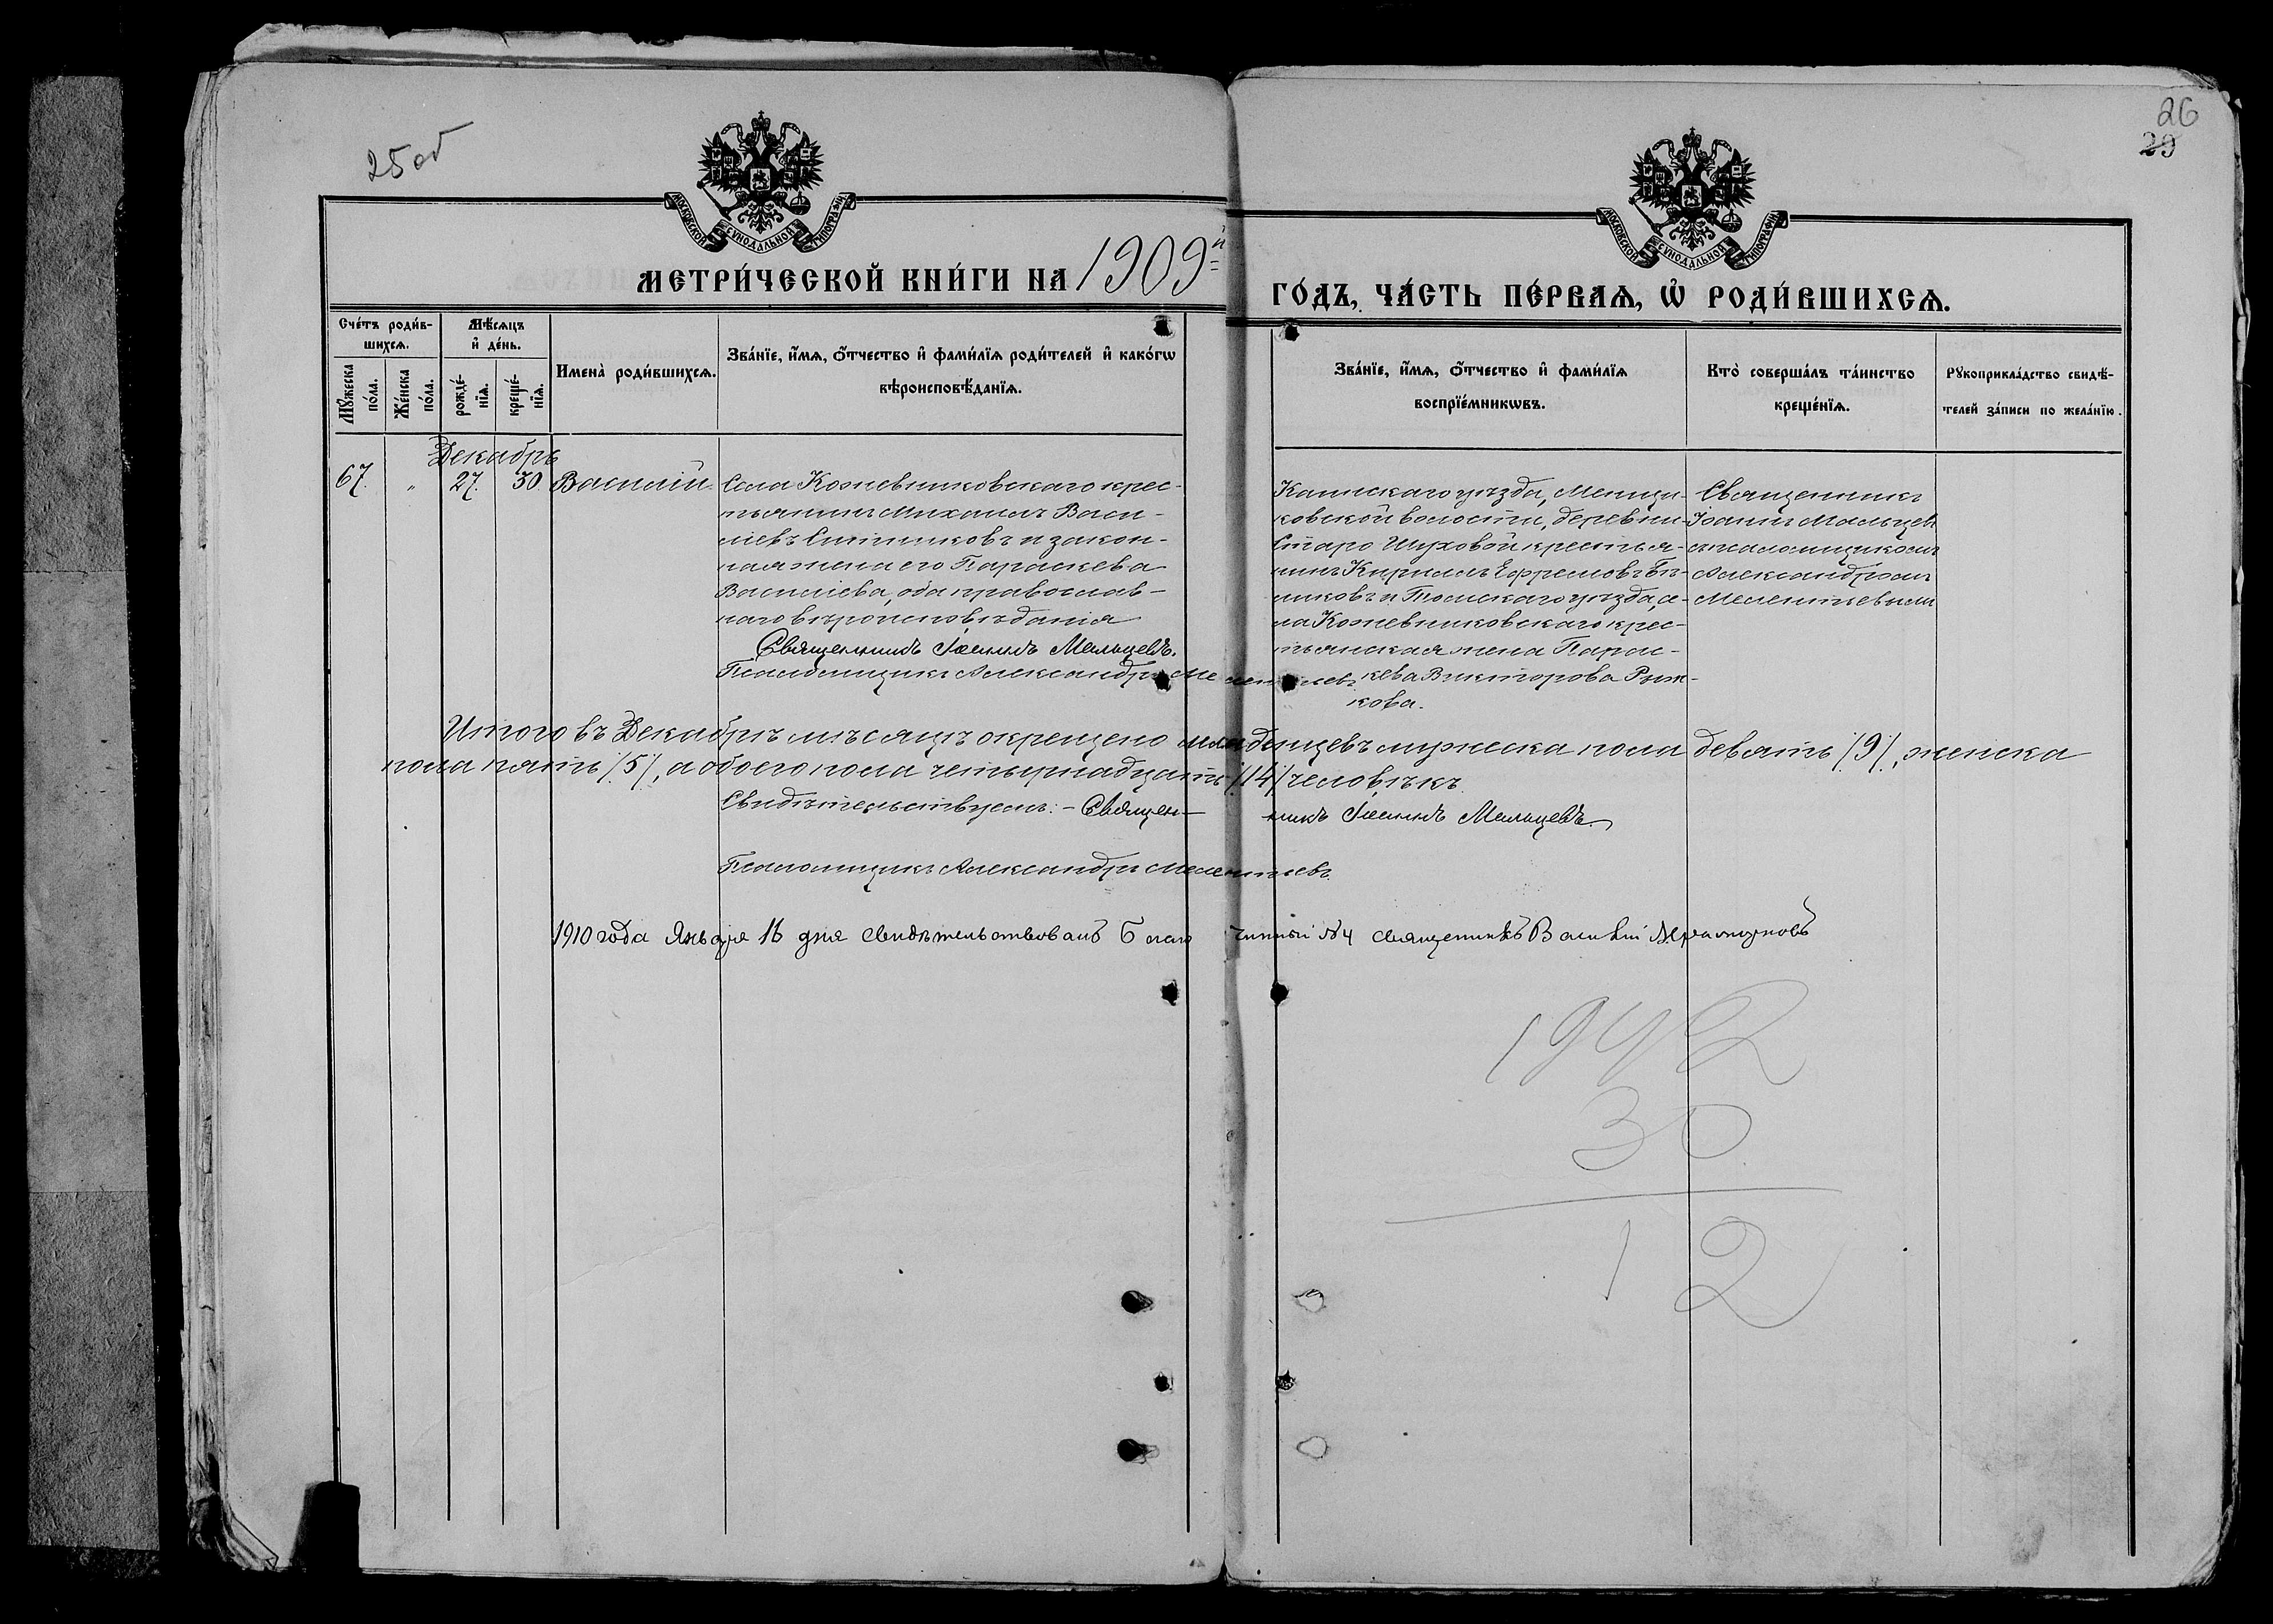 25 об
26
29
МОСКОВСКОЙ СѴНОДАЛЬНОЙ ТИПОГРАФІИ
МОСКОВСКОЙ СѴНОДАЛЬНОЙ ТИПОГРАФІИ
МЕТРИ́ЧЕСКОЙ КНИ́ГИ НА 1909й
ГО́ДЪ, ЧА́СТЬ ПЕ́РВАѦ, Ѡ҆ РОДИ́ВШИХСѦ.
Сче́тъ роди́в-
шихсѧ.
Мꙋ́жеска
по́ла.
Же́нска
по́ла.
Мѣ́сѧцъ
и҆ де́нь.
рожде́-
нїѧ.
креще́-
нїѧ.
Имена̀ роди́вшихсѧ.
Зва́нїе, и҆́мѧ, ѻ҆́тчество и҆ фами́лїѧ роди́телей и҆ како́гѡ
вѣроисповѣ́данїѧ.
Зва́нїе, и҆́мѧ, ѻ҆́тчество и҆ фами́лїѧ
воспрїе́мникѡвъ.
Кто̀ соверша́лъ та́инство
креще́нїѧ.
Рꙋкоприкла́дство свидѣ́-
телей за́писи по жела́нїю.
Декабрь
67. " 27. 30. Василій.
Села Кожевниковскаго крес-
тьянинъ Михаилъ Васи-
ліевъ Ситниковъ и закон-
ная жена его Параскева
Василіева, оба православ-
наго вѣроисповѣданія
Священникъ Іоаннъ Мальцевъ.
Псаломщикъ Александръ Мелентьевъ
Каинскаго уѣзда, Меньщи-
ковской волости, деревни
Старо Шуховой крестья-
нинъ Кириллъ Ефремовъ
никовъ и Томскаго уѣзда, се-
ла Кожевниковскаго крес-
тьянская жена Парас-
кева Викторова Рыж-
кова.
Священникъ
Іоаннъ Мальцевъ
съ псаломщикомъ
Александромъ
Мелентьевымъ
Итого въ Декабрѣ мѣсяцѣ окрещено младенцевъ мужеска пола девять /9/, женска
пола пять /5/, а обоего пола четырнадцать /14/ человѣкъ.
Свидѣтельствуемъ: - Священникъ Іоаннъ Мальцевъ.
Псаломщикъ Александръ Мелентьевъ.
1910 года Января 16 дня свидѣтельствовалъ Благочинный №4 священникъ Василій
1942
30
12